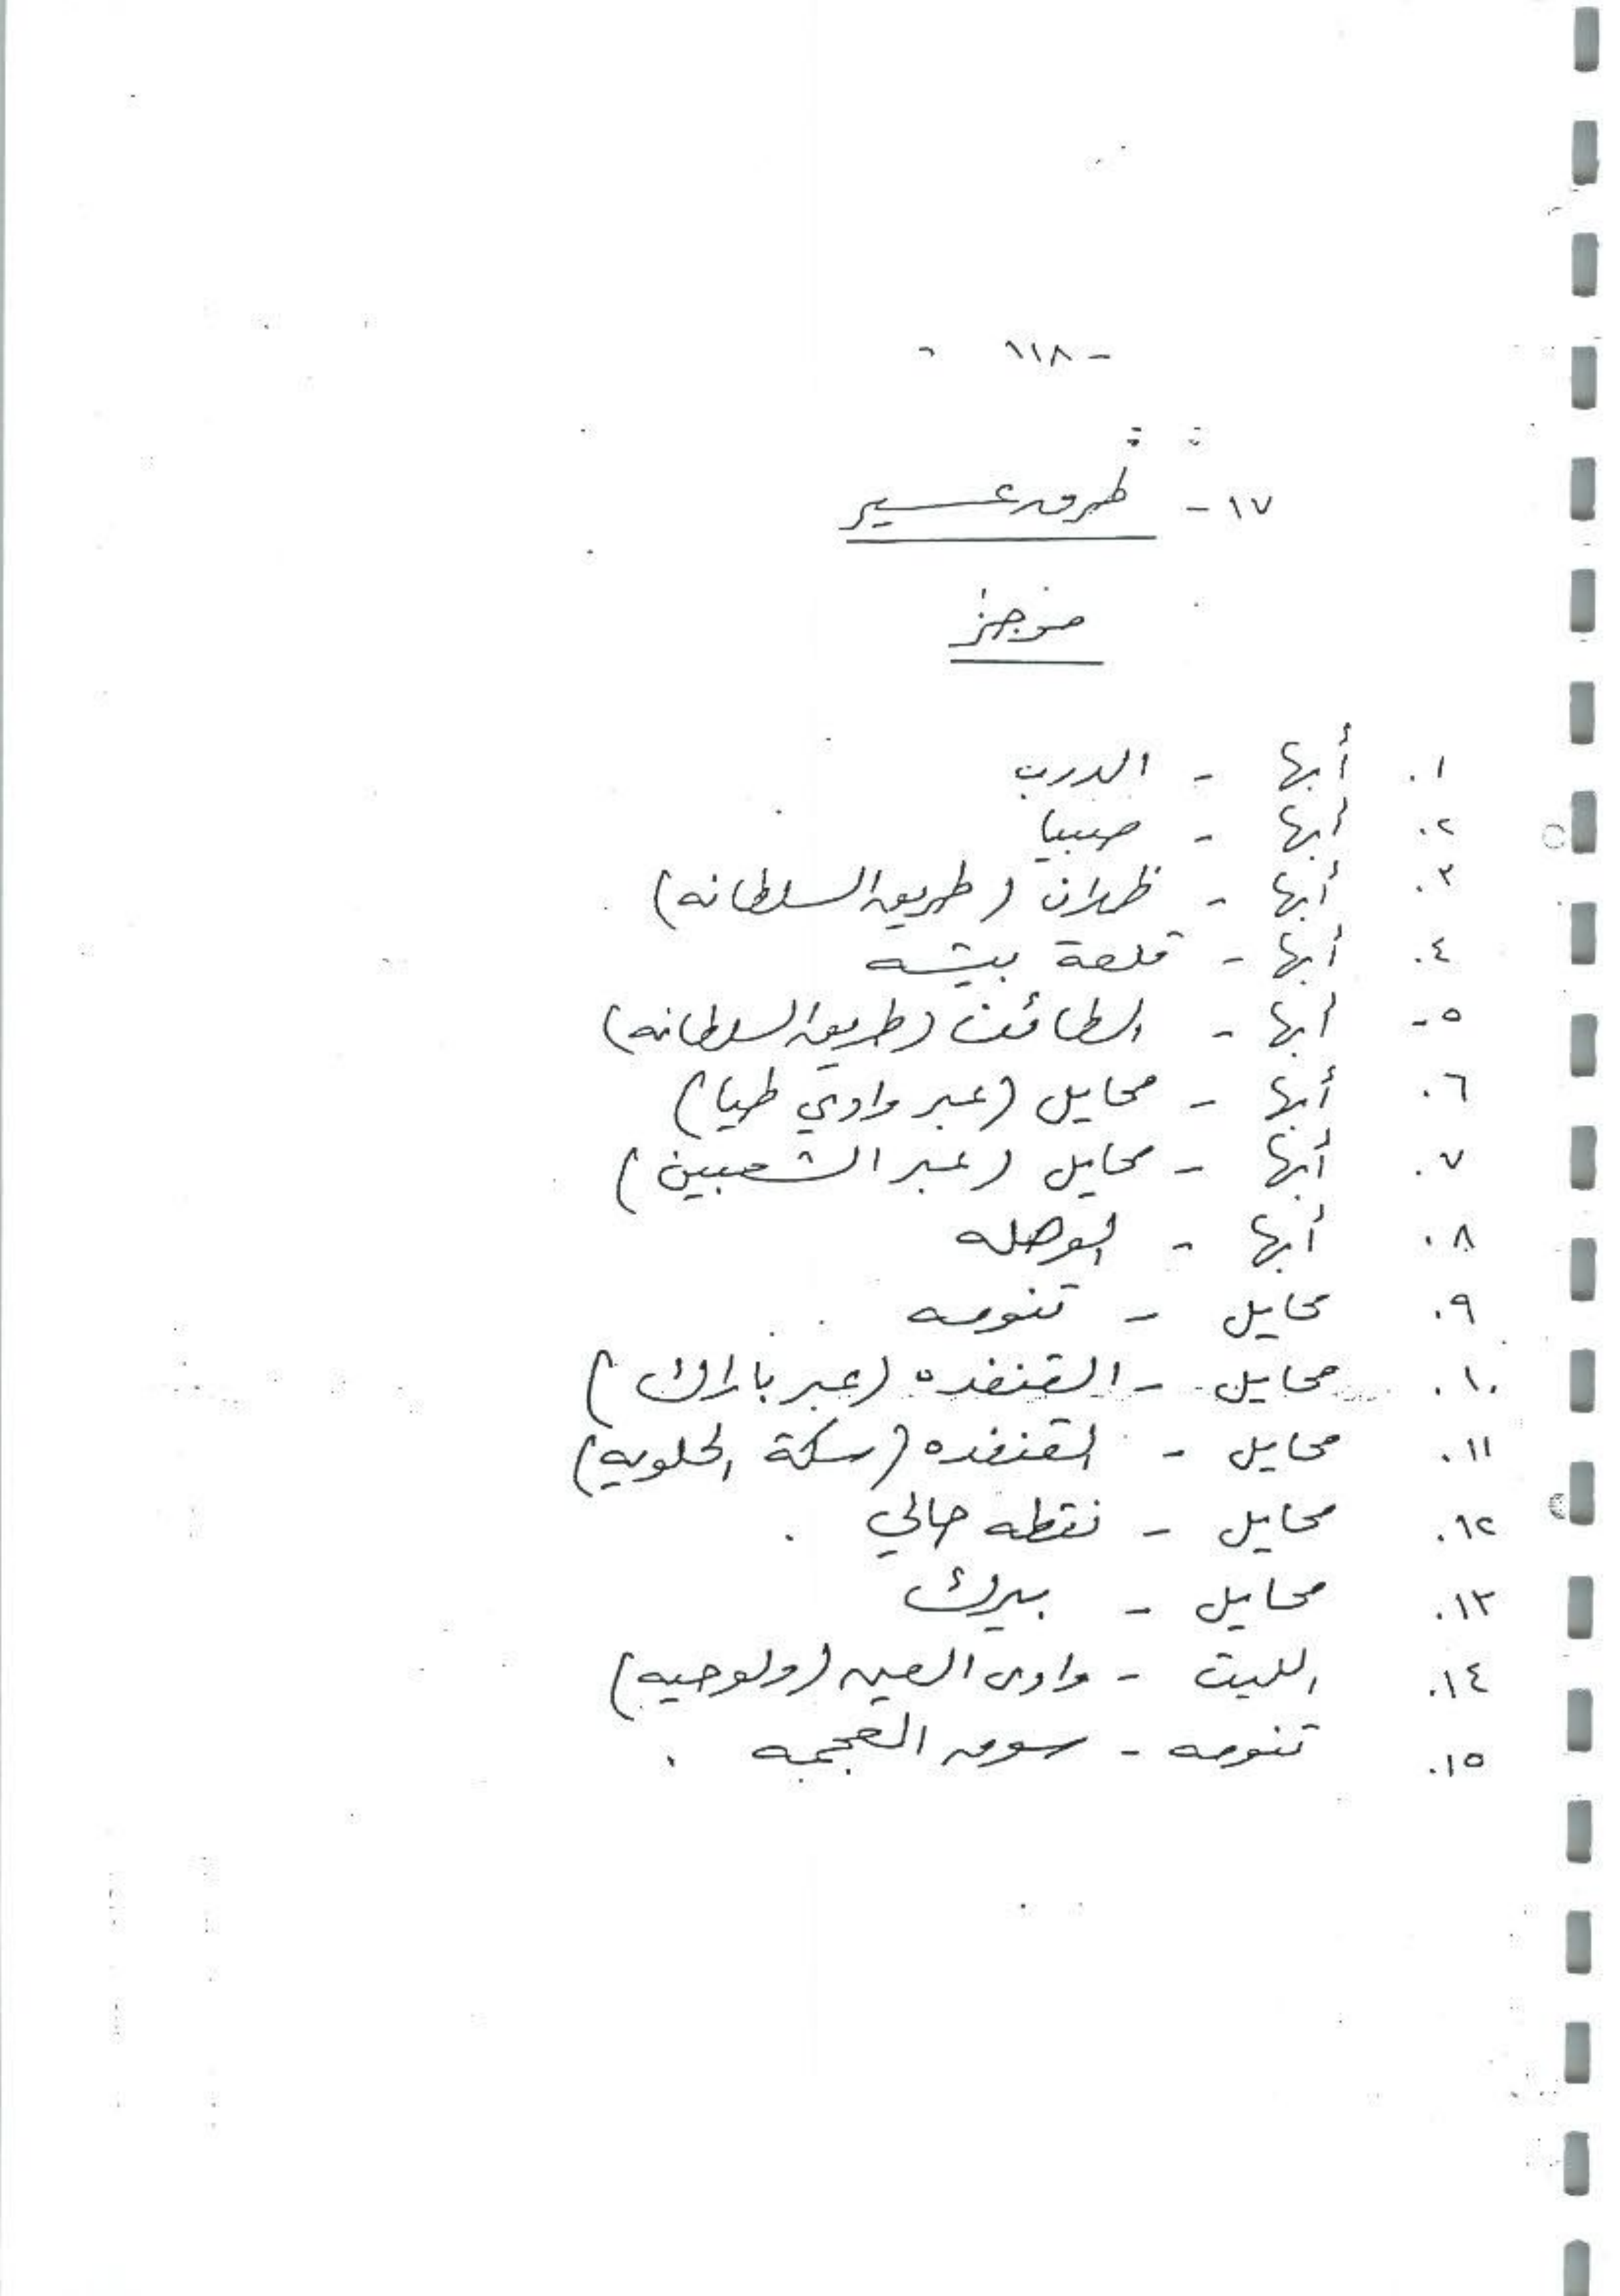 - ١١٨ -
١٧- طرق عسير
موجز
١. أبها - الدرب
٢. أبها - صبيا
٣. أبها - ظهران (طريق السلطانه)
٤. أبها - قلعة بيشه
٥- أبها - الطائف (طريق السلطانه)
٦. أبها - محايل (عبر وادي طيا)
٧. أبها - محايل (عبر الشعبين)
٨. أبها - الوصله
٩. محايل - تنومه
١٠. محايل - القنفده (عبر باراك)
١١. محايل - القنفده (سكة الحلويه)
١٢. محايل - نقطه حالي
١٣. محايل - بيرك
١٤. الليت - وادى العين (ولوحيه)
١٥. تنومه - سوق العجمه .